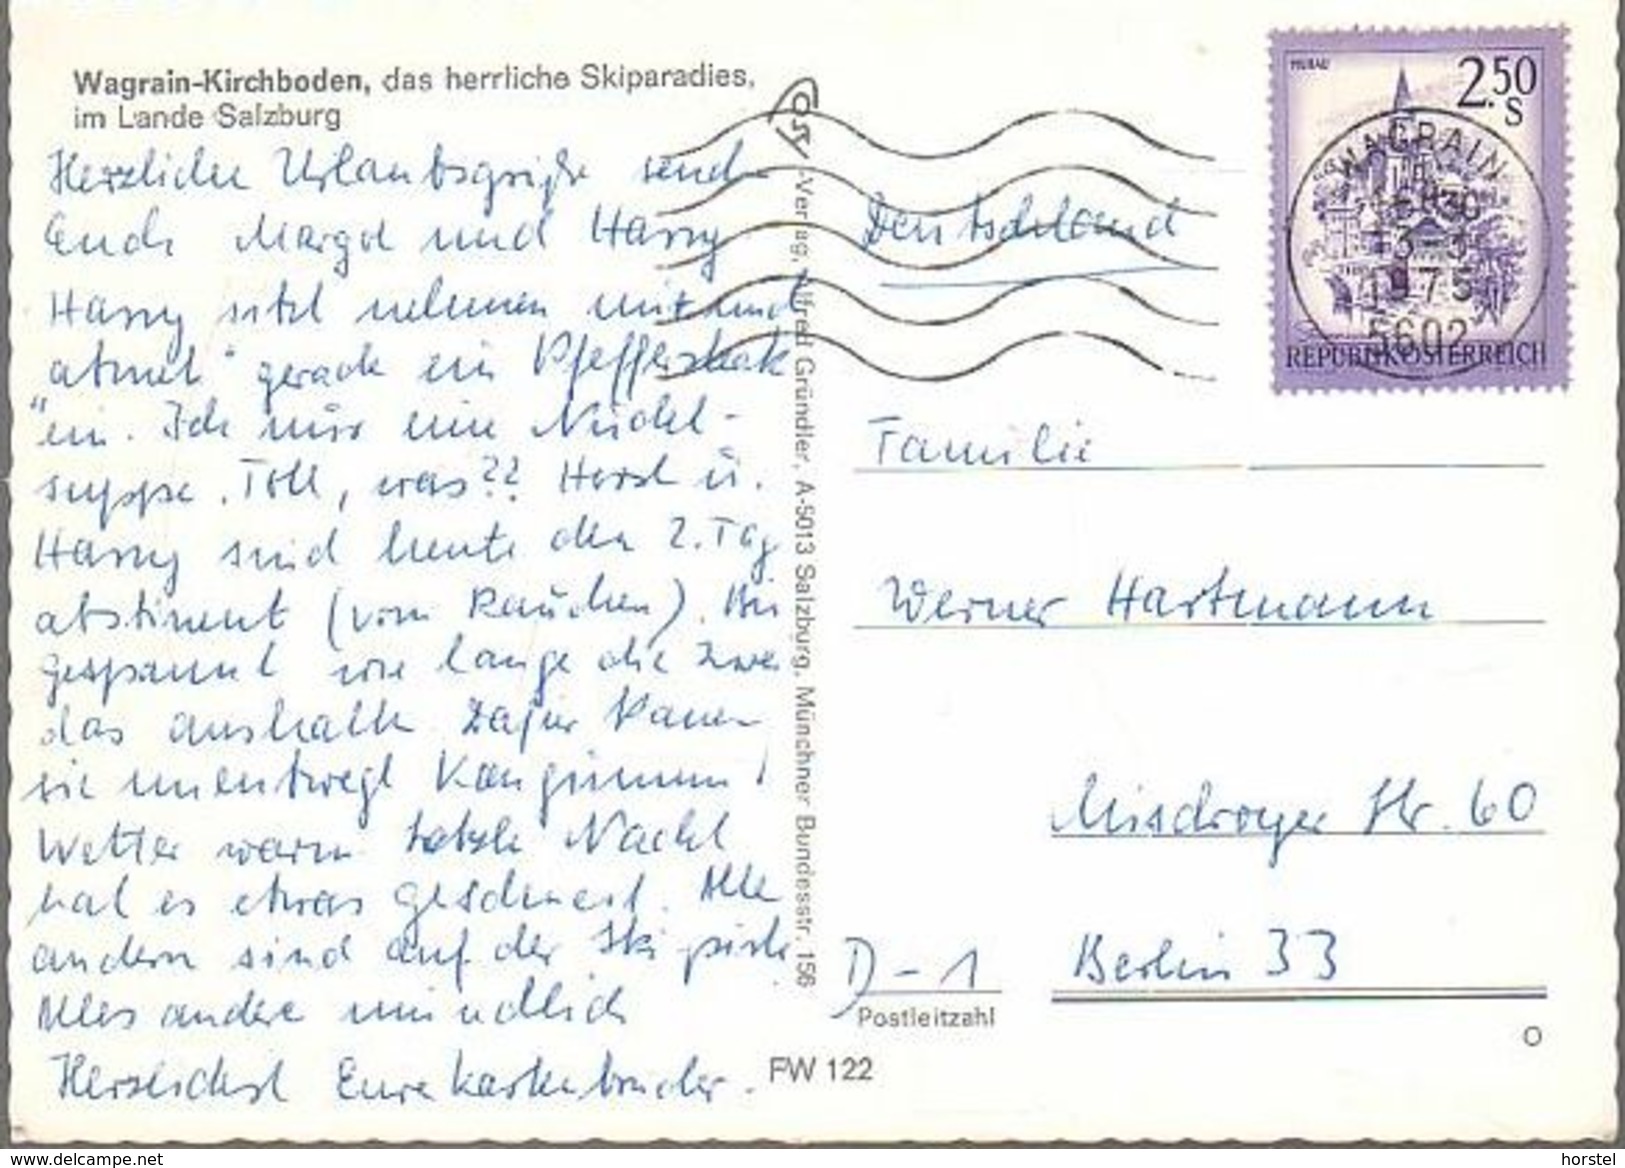 Wagrain-Kirchboden, das herrliche Skiparadies,
im Lande Salzburg
Herzliche Urlaubsgrüße send
Euch Margot und Harry
Harry sitzt neben mir und
atmet" gerade ein Pfeffersteak
"ein. Ich nur eine Nudel-
suppe. Toll, was?? Horst u.
Harry sind heute den 2. Tag
abstinent (vom Rauchen). Bin
gespannt wie lange die zwei
das aushalten. Dafür kauen
sie unentwegt Kaugummi!
Wetter warm letzte Nacht
hat es etwas geschneit. Alle
andern sind auf der Ski piste
Alles andere mündlich
Herzlichst Eure Kartenbrüder.
Verlag, Alfred Gründler, A-5013 Salzburg, Münchner Bundesstr. 156
FW 122
MURAU
2.50
S
REPUBLIK ÖSTERREICH
WAGRAIN
13-3
1975
5602
Deutschland
Familie
Werner Hartmann
Misdroyer Str. 60
D-1 Berlin 33
Postleitzahl
O
www.delcampe.net
horstel